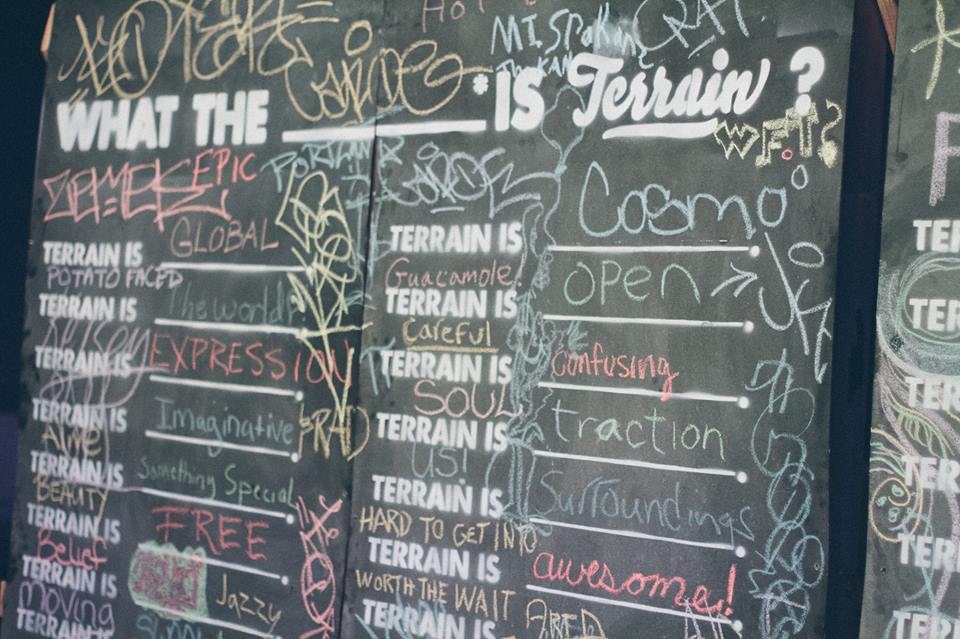 HOT
MT. Spokane
WHAT THE ________ * IS Terrain ?
W.F.T?
EPIC
PORTLAND
TERRAIN IS GLOBAL
POTATO FACED
TERRAIN IS The world
TERRAIN IS EXPRESSION
TERRAIN IS Imaginative
RAD
ALIVE
TERRAIN IS Something Special
BEAUTY
TERRAIN IS FREE
Belief
TERRAIN IS Jazzy
moving
TERRAIN IS
TERRAIN IS Cosmo
Guacamole!
TERRAIN IS open
Careful
TERRAIN IS confusing
SOUL
TERRAIN IS traction
US!
TERRAIN IS Surroundings
HARD TO GET INTO
TERRAIN IS awesome!
WORTH THE WAIT
TERRAIN IS
TER
TER
TER
TER
TER
TER